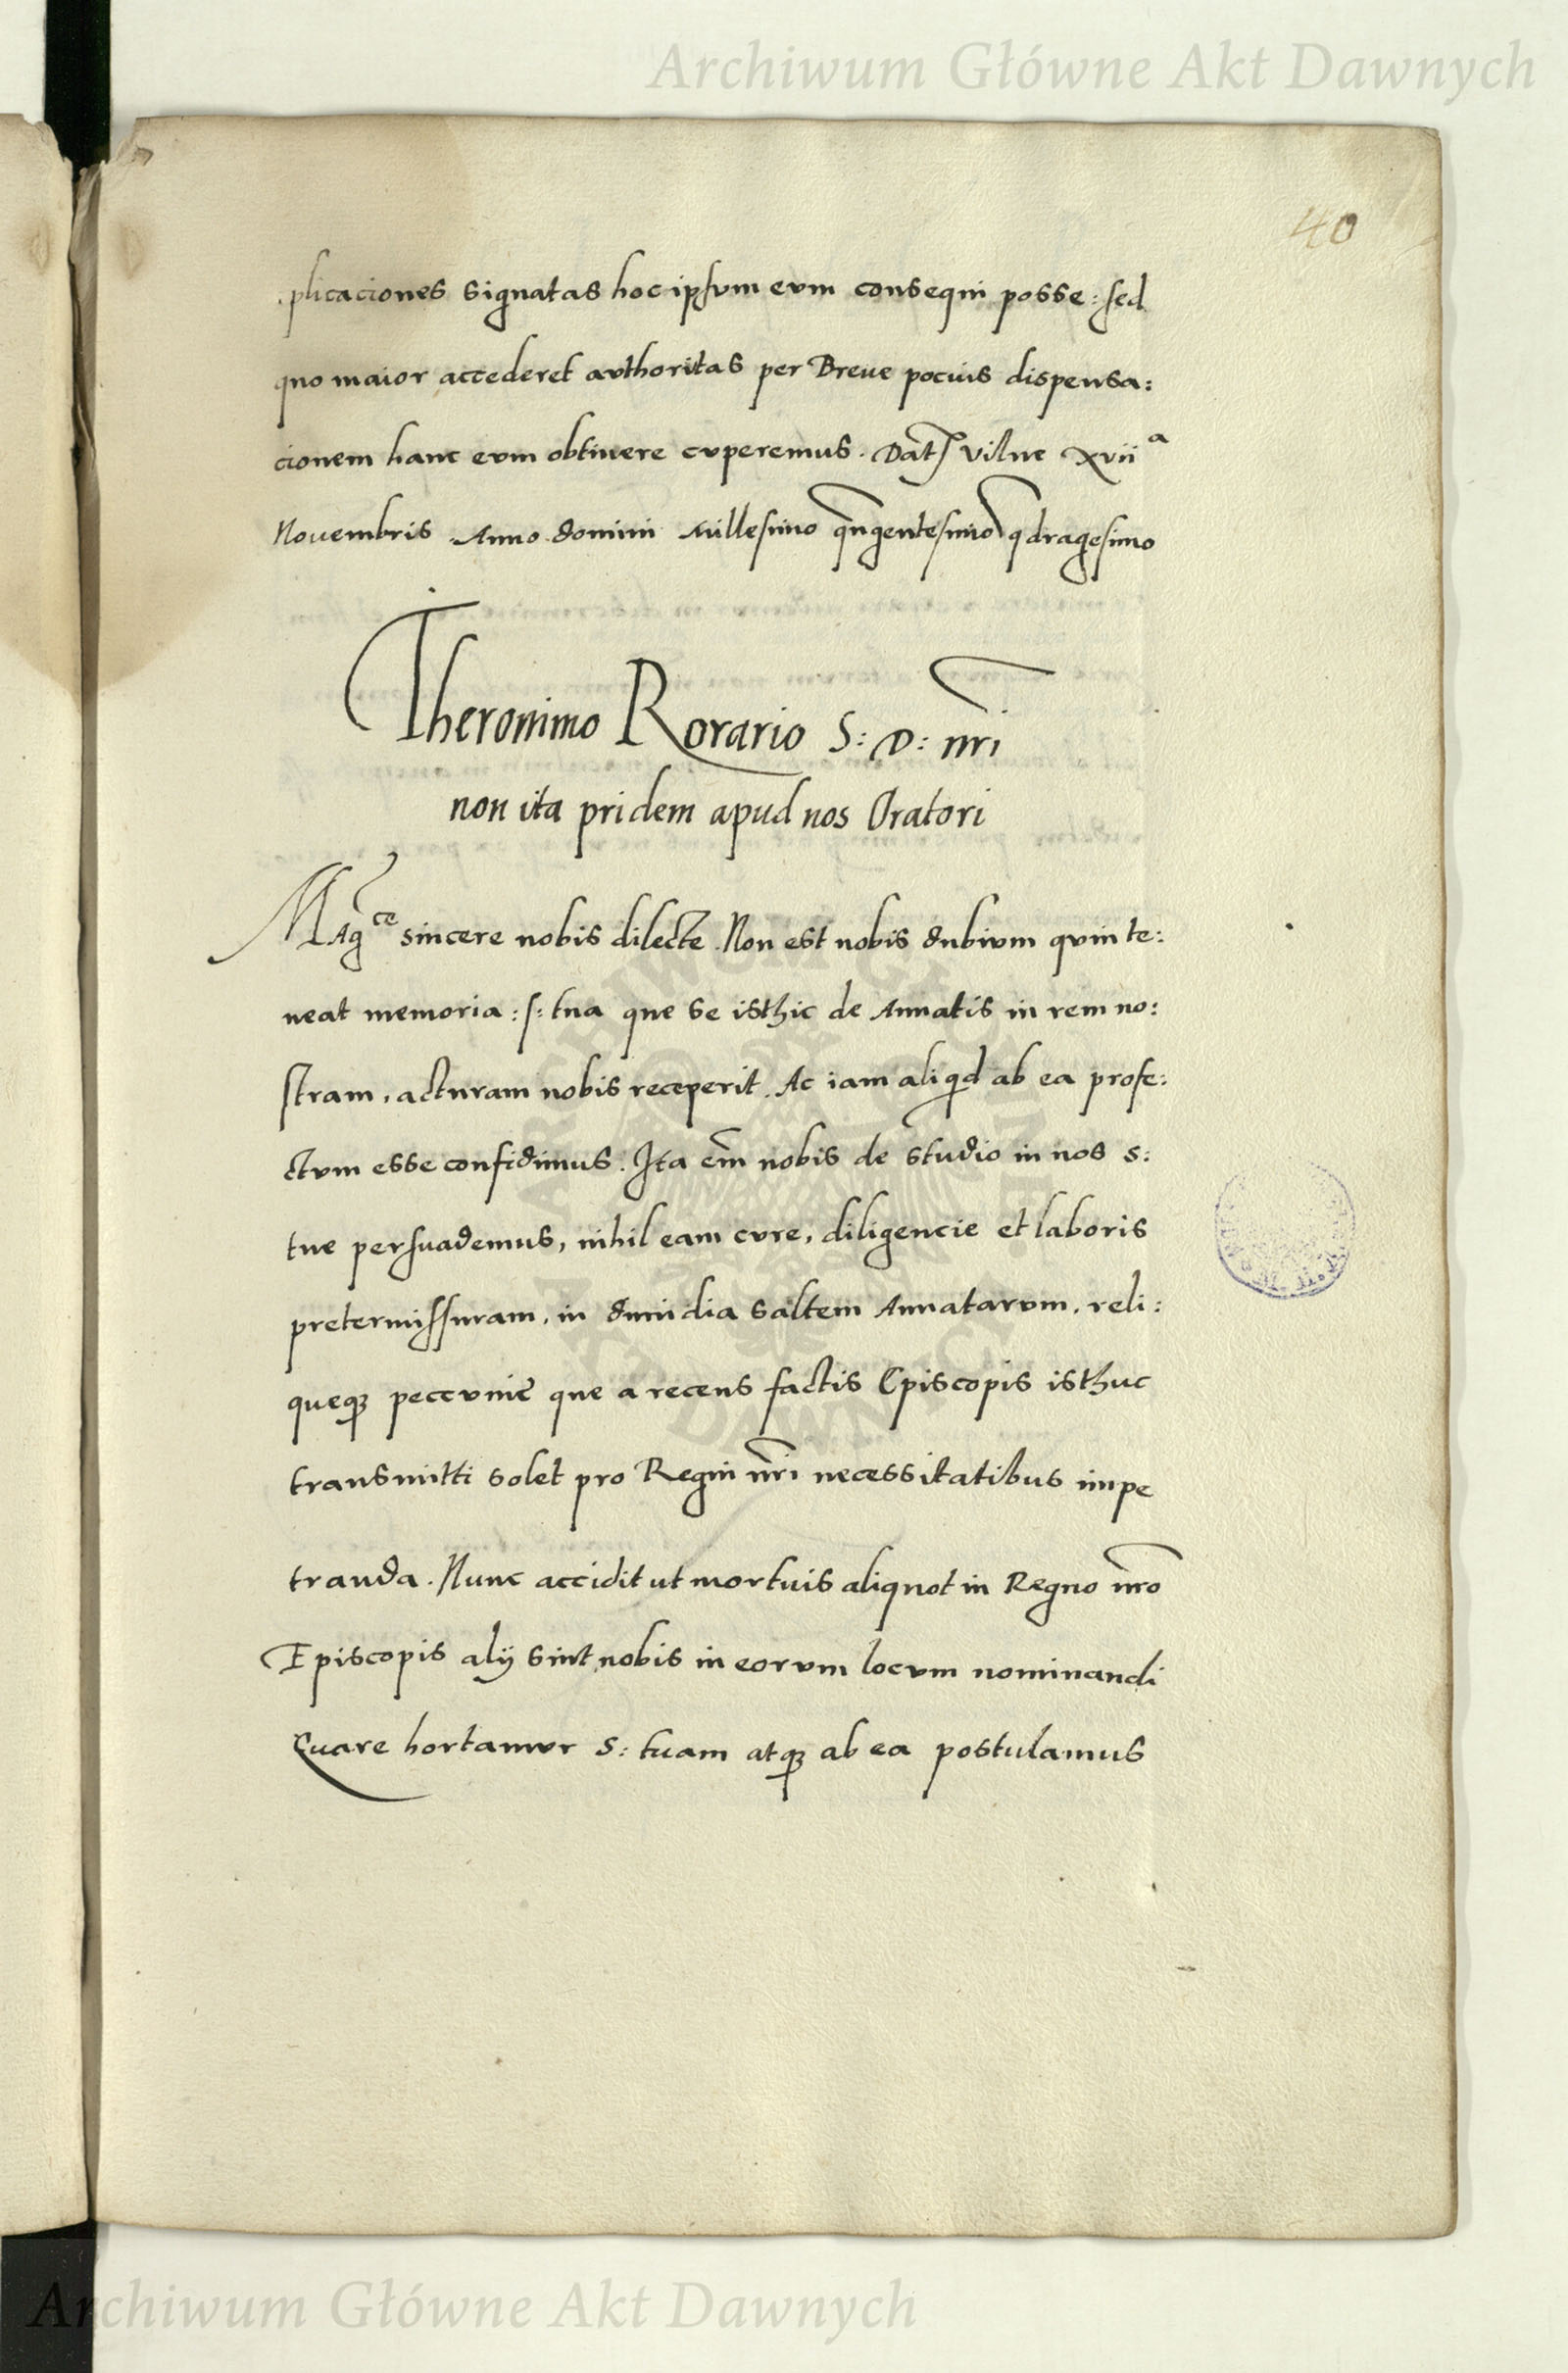 Archiwum Główne Akt Dawnych
40
plicaciones signatas hoc ipsum eum consequi posse: sed
quo maior accederet authoritas per Breue pocius dispensa:
cionem hanc eum obtinere cuperemus. Dat Vilne xvii a
Nouembris Anno domini Millesimo qngentesimo qdragesimo
Iheronimo Rorario S: D: nri
non ita pridem apud nos Oratori
Mag ce sincere nobis dilecte. Non est nobis dubium quin te:
neat memoria: s: tua que se isthic de Annatis in rem no:
stram, acturam nobis receperit. Ac iam aliqd ab ea profe:
ctum esse confidimus. Ita em nobis de studio in nos s:
tue persuademus, nihil eam cure, diligencie et laboris
pretermissuram, in dimidia saltem Annatarum, reli:
queqz peccunie que a recens factis Episcopis isthuc
transmitti solet pro Regni nri necessitatibus impe
tranda. Nunc accidit ut mortuis aliquot in Regno nro
Episcopis alij sint nobis in eorum locum nominandi
Quare hortamur S: tuam atqz ab ea postulamus
Archiwum Główne Akt Dawnych